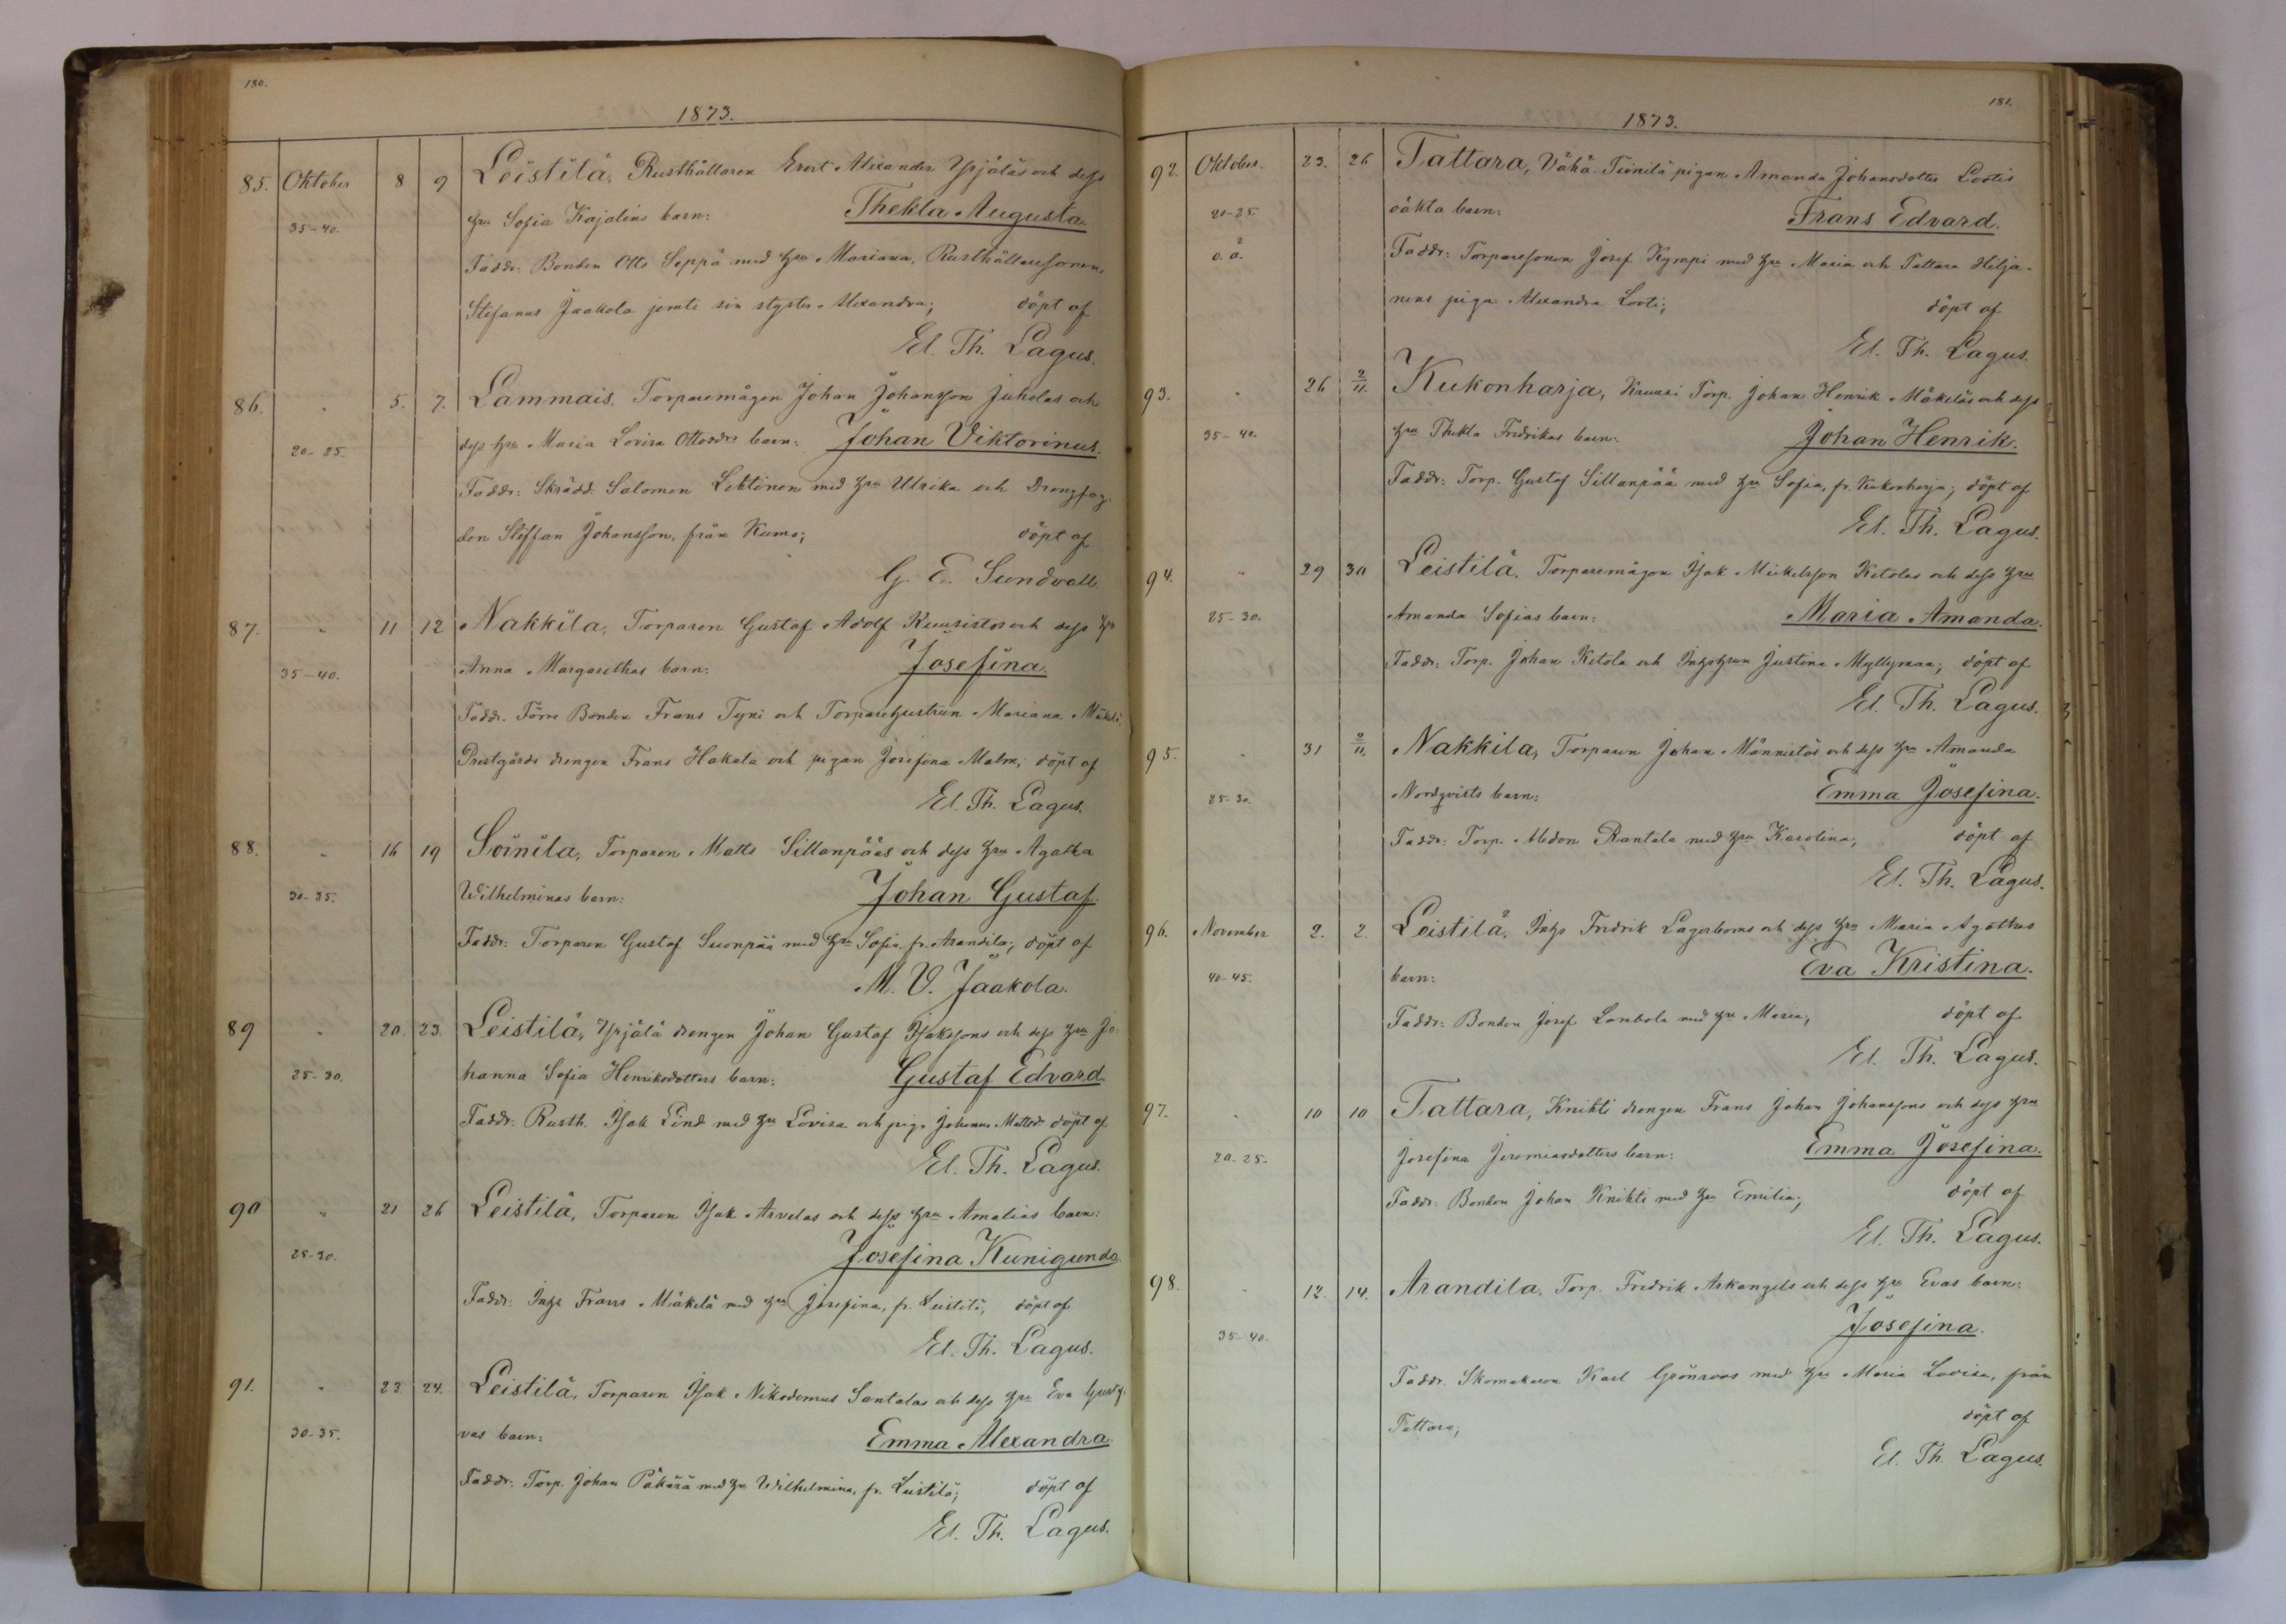 180.
1873.
85. Oktober 8 9 Leistilä, Rusthållaren Ernst Alexander Yrjäläs och dess
35-40. hru Sofia Kajalins barn: Thekla Augusta.
Faddr: Bonden Otto Seppä med hru Mariana, Rusthållaresonen,
Stefanus Jaakola jemte sin syster Alexandra; döpt af
El. Th. Lagus.
86. " 5. 7. Lammais. Torparemågen Johan Johansson Juholas och
20-25. dess hru Maria Lovisa Ottosdrs barn: Johan Viktorinus.
Faddr: Skrädd. Salomon Lehtinen med hru Ulrika och
den Steffan Johansson, från Kumo; döpt af
G. E. Sundvall
87. " 11 12 Nakkila, Torparen Gustaf Adolf Kuusistos och dess hru
35-40. Anna Margarethas barn: Josefina.
Faddr. Förre Bonden Frans Tyni och Torparehustrun Mariana Mäkelä,
Prestgårds drengen Frans Hakala och pigan Josefina Malm; döpt af
El. Th. Lagus.
88. " 16 19 Soinila, Torparen Matts Sillanpääs och dess hru Agatha
30-35. Wilhelminas barn: Johan Gustaf.
Faddr: Torparen Gustaf Suonpää med hru Sofia, fr. Arandila; döpt af
M. V. Jaakola.
89 " 20. 23. Leistilä, Yrjälä drengen Johan Gustaf Isakssons och dess hru Jo-
25-30. hanna Sofia Henriksdotters barn: Gustaf Edvard
Faddr. Rusth. Isak Lind med hru Lovisa och piga Johanna Mattsdr döpt af
El. Th. Lagus.
90 " 21 26 Leistilä, Torparen Isak Arvelas och dess hru Amalias barn:
25-30. Josefina Kunigunda.
Faddr: Inhs Frans Mäkelä med hru Josefina, fr. Leistilä; döpt af
El. Th. Lagus.
91. " 23. 24. Leistilä, Torparen Isak Nikodemus Santalas och dess hru Eva Gusta-
30-35. vas barn: Emma Alexandra.
Faddr: Torp. Johan Päkärä med hru Wilhelmina, fr. Leistilä; döpt af
El. Th. Lagus.
181.
1873.
92. Oktober. 23. 26 Tattara, Vähä-Tiinilä pigan Amanda Johansdotter Lootis
20-25 oäkta barn: Frans Edvard.
o. ä. Faddr: Torparesonen Josef Kympi med hru Maria och Tattara Hilja-
nens piga Alexandra Looti; döpt af
El. Th. Lagus.
93. " 26 2/11. Kukonharja, Kruusi Torp. Johan Henrik Mäkeläs och dess
35-40. hru Thekla Fredrikas barn: Johan Henrik.
Faddr: Torp. Gustaf Sillanpää med hru Sofia, fr. Kukonharja; döpt af
El. Th. Lagus.
94. " 29 30 Leistilä, Torparemågen Isak Mickelsson Ketolas och dess hru
25-30. Amanda Sofias barn: Maria Amanda.
Faddr: Torp. Johan Ketola och Inhshrun Justina Myllymaa; döpt af
El. Th. Lagus.
95. " 31 2/11. Nakkila, Torparen Johan Männistös och dess hru Amanda
25-30. Nordqvists barn: Emma Josefina.
Faddr: Torp. Medon Rantala med hru Karolina; döpt af
El. Th. Lagus.
96. November 2. 2. Leistilä, Inhs Fredrik Lagerboms och dess hru Maria Agathas
40-45. barn: Eva Kristina.
Faddr: Bonden Josef Lambola med hru Maria; döpt af
El. Th. Lagus.
97. " 10 10 Tattara, Knihti drengen Frans Johan Johanssons och dess hru
20-25. Josefina Jeremiasdotters barn: Emma Josefina.
Faddr: Bonden Johan Knihti med hru Emilia; döpt af
El. Th. Lagus.
98. " 12. 14. Arandila, Torp. Fredrik Arkangels och dess hru Evas barn:
35-40. Josefina.
Faddr. Skomakaren Karl Grönroos med hru Maria Lovisa, från
Tattara; döpt af
El. Th. Lagus.